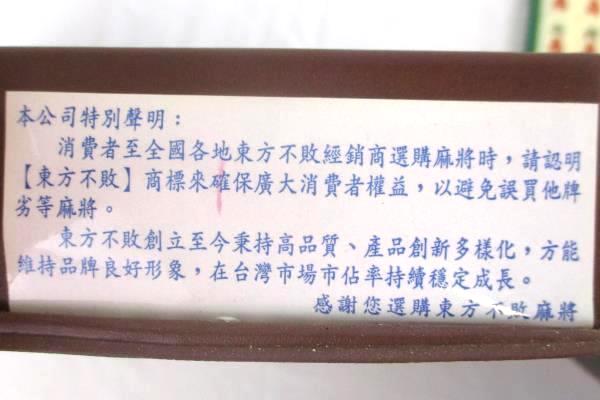 本公司特別聲明：
消費者至全國各地東方不敗經銷商選購麻將時，請認明
【東方不敗】商標來確保廣大消費者權益，以避免誤買他牌
劣等麻將。
東方不敗創立至今秉持高品質、產品創新多樣化，方能
維持品牌良好形象，在台灣市場市佔率持續穩定成長。
感謝您選購東方不敗麻將